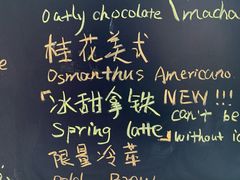 Oatly chocolate \ macha
桂花美式
Osmanthus Americano
冰甜拿铁 NEW!!!
Spring latte can't be
without ic
限量冷萃